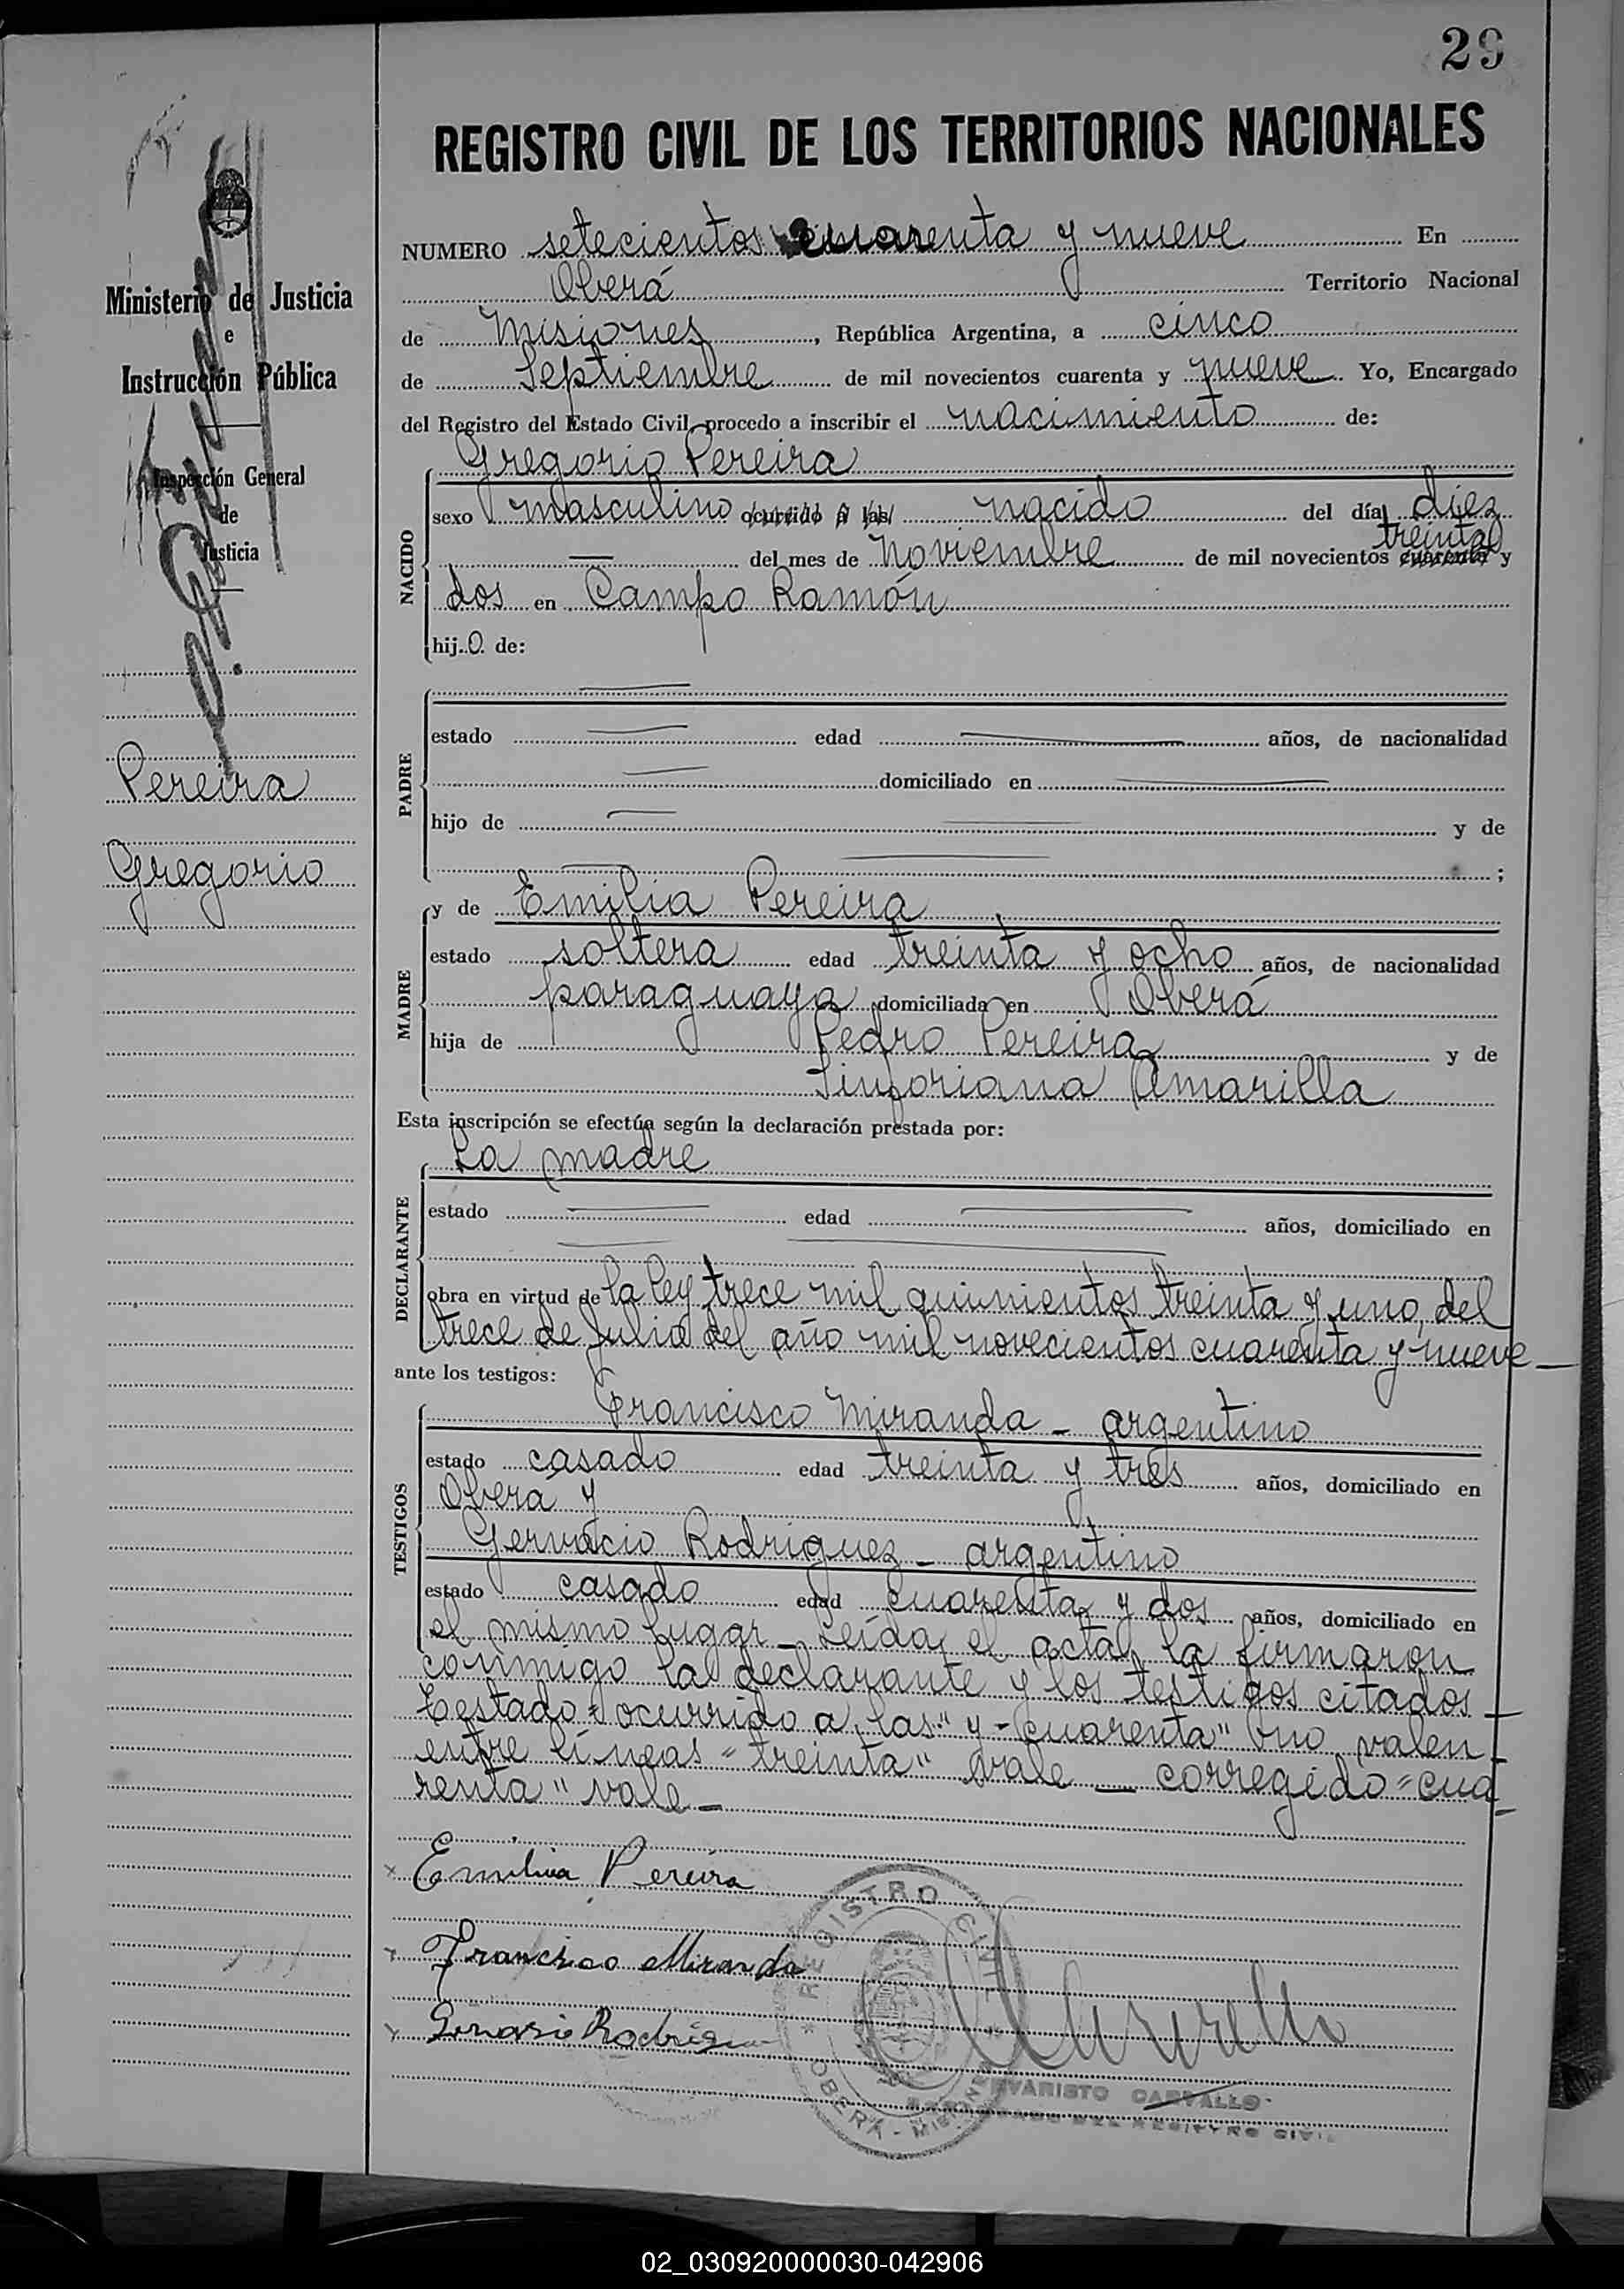 29
REGISTRO CIVIL DE LOS TERRITORIOS NACIONALES
NUMERO setecientos cuarenta y nueve En
Oberá Territorio Nacional
de Misiones, República Argentina, a cinco
de Septiembre de mil novecientos cuarenta y nueve. Yo, Encargado
del Registro del Estado Civil, procedo a inscribir el nacimiento de:
Ministerio de Justicia
e
Instrucción Pública
Inspección General
de
Justicia
Pereira
Gregorio
NACIDO
Gregorio Pereira
sexo masculino ocurrido a las nacido del día diez
treinta
— del mes de Noviembre de mil novecientos cuarenta y
dos en Campo Ramón
hijo de:
PADRE
estado — edad — años, de nacionalidad
— domiciliado en —
hijo de — y de
— ;
MADRE
y de Emilia Pereira
estado soltera edad treinta y ocho años, de nacionalidad
paraguaya domiciliada en Oberá
hija de Pedro Pereira y de
Sinforiana Amarilla
Esta inscripción se efectúa según la declaración prestada por:
DECLARANTE
La madre
estado — edad — años, domiciliado en
obra en virtud de la ley trece mil quinientos treinta y uno, del
trece de Julio del año mil novecientos cuarenta y nueve —
ante los testigos:
TESTIGOS
Francisco Miranda - argentino
estado casado edad treinta y tres años, domiciliado en
Oberá y
Gervacio Rodriguez - argentino
estado casado edad cuarenta y dos años, domiciliado en
el mismo lugar - Leída el acta, la firmaron
conmigo la declarante y los testigos citados —
Testado = ocurrido a las" y - cuarenta" no valen -
entre líneas "treinta" vale — corregido = cua-
renta" vale -
x Emilia Pereira
x Francisco Miranda
x Rodrigu
REGISTRO CIVIL
* OBERÁ - MISIONES *
EVARISTO CARVALLO
ENCARGADO DEL REGISTRO CIVIL
02_030920000030-042906